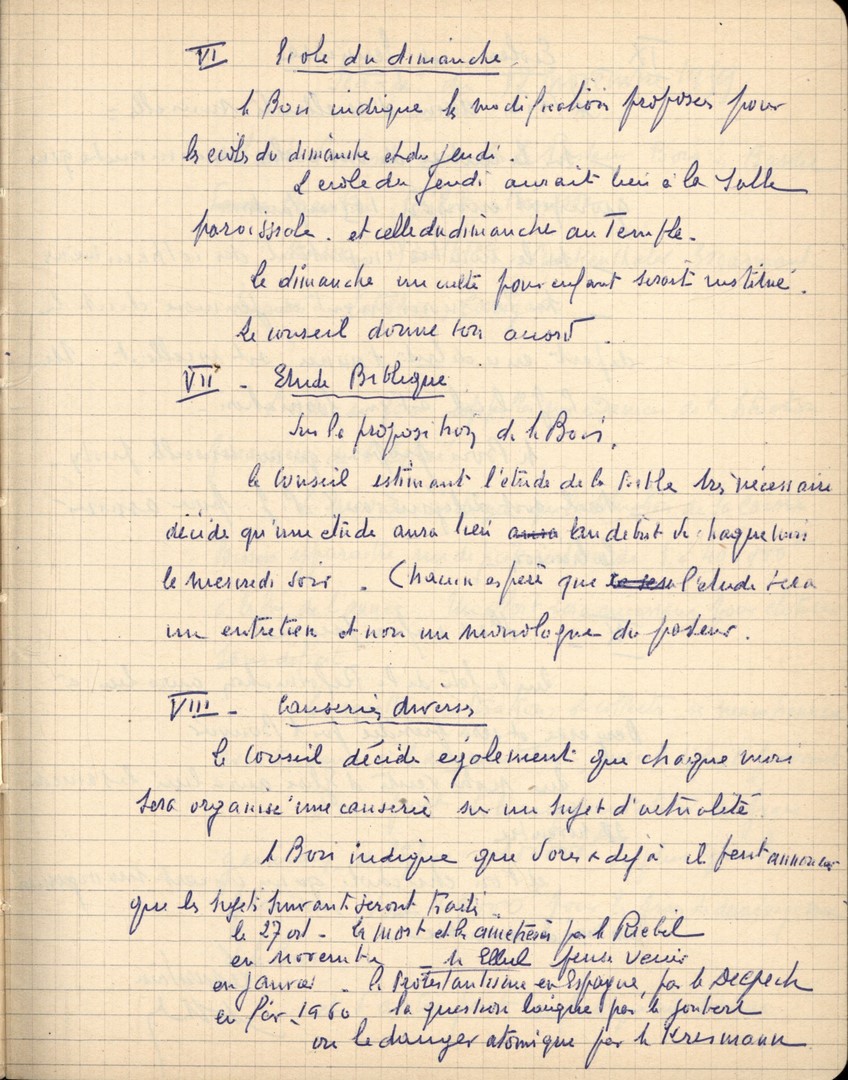 VI Ecole du dimanche.
M Bois indique les modifications proposées pour
les écoles du dimanche et du jeudi.
L'école du jeudi aurait lieu à la Salle
paroissiale. et celle du dimanche au Temple.
Le dimanche un culte pour enfant serait institué.
Le conseil donne son accord.
VII - Etude Biblique
Sur la proposition de M Bois,
le Conseil estimant l'étude de la Bible très nécessaire
décide qu'une étude aura lieu au début de chaque mois
le mercredi soir. Chacun espère que l'étude sera
un entretien et non un monologue du pasteur.
VIII - Causeries diverses
Le Conseil décide également que chaque mois
sera organisé une causerie sur un sujet d'actualité
M Bois indique que d'ores et déjà il peut annoncer
que les sujets suivants seront traités
le 27 oct - la mort et les cimetières par M
en novembre - M Ellul pense venir
en janvier - le Protestantisme en Espagne, par M Delpech
en fév. 1960 la question laïque par M Joubert
ou le danger atomique par M Kressmann